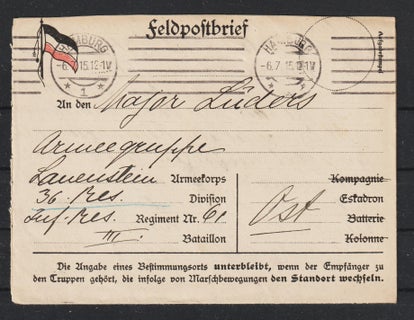 Feldpostbrief
HAMBURG
-6.7.15.12-1V
* 1 *
HAMBURG
-6.7.15.12-1V
An den Major Lüders
Armeegruppe
Lauenstein Armeekorps
36. Res. Division
Inf. Res. Regiment Nr. 61
III. Bataillon
Kompagnie
Ost Eskadron
Batterie
Kolonne
Die Angabe eines Bestimmungsorts unterbleibt, wenn der Empfänger zu
den Truppen gehört, die infolge von Marschbewegungen den Standort wechseln.